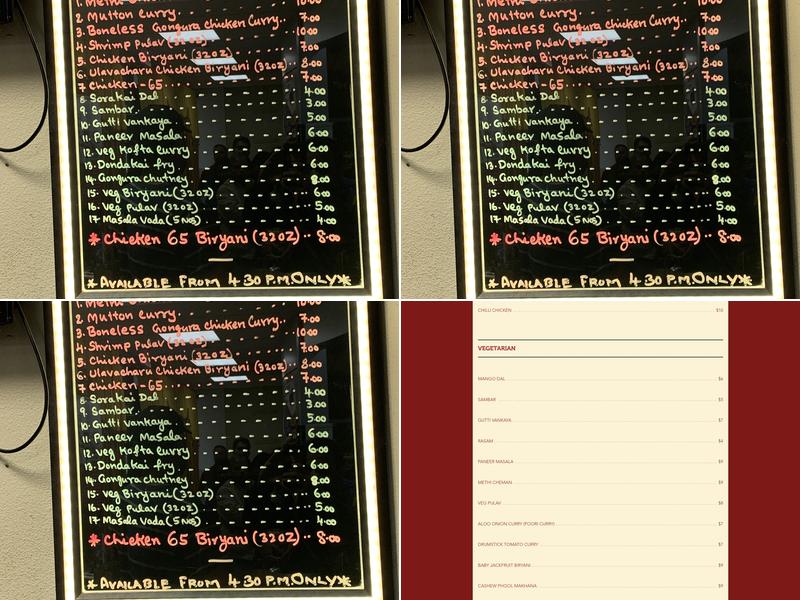 1. Methi Chicken Curry
2 Mutton curry. 10.00
3. Boneless Gongura chicken Curry.. 7.00
4. Shrimp Pulav (32 oz) 10.00
5. Chicken Biryani (32oz) 7.00
6. Ulavacharu Chicken Biryani (32oz) 8.00
7 Chicken-65 7.00
8 Sorakai Dal 4.00
9. Sambar. 3.00
10. Gutti vankaya 5.00
11. Paneer Masala. 6.00
12. veg Kofta curry. 6.00
13. Dondakai fry. 6.00
14. Gongura chutney 8.00
15. veg Biryani (32oz) 6.00
16. Veg Pulav (32oz) 5.00
17 Masala Vada (5 Nos) 4.00
* Chicken 65 Biryani (32oz) .. 8.00
*AVAILABLE FROM 4 30 P.M.ONLY*
1. Methi Chicken Curry
2 Mutton curry. 10.00
3. Boneless Gongura chicken Curry.. 7.00
4. Shrimp Pulav (32 oz) 10.00
5. Chicken Biryani (32oz) 7.00
6. Ulavacharu Chicken Biryani (32oz) 8.00
7 Chicken-65 7.00
8 Sorakai Dal 4.00
9. Sambar. 3.00
10. Gutti vankaya 5.00
11. Paneer Masala. 6.00
12. veg Kofta curry. 6.00
13. Dondakai fry. 6.00
14. Gongura chutney 8.00
15. veg Biryani (32oz) 6.00
16. Veg Pulav (32oz) 5.00
17 Masala Vada (5 Nos) 4.00
* Chicken 65 Biryani (32oz) .. 8.00
*AVAILABLE FROM 4 30 P.M.ONLY*
1. Methi Chicken Curry
2 Mutton curry. 10.00
3. Boneless Gongura chicken Curry.. 7.00
4. Shrimp Pulav (32 oz) 10.00
5. Chicken Biryani (32oz) 7.00
6. Ulavacharu Chicken Biryani (32oz) 8.00
7 Chicken-65 7.00
8 Sorakai Dal 4.00
9. Sambar. 3.00
10. Gutti vankaya 5.00
11. Paneer Masala. 6.00
12. veg Kofta curry. 6.00
13. Dondakai fry. 6.00
14. Gongura chutney 8.00
15. veg Biryani (32oz) 6.00
16. Veg Pulav (32oz) 5.00
17 Masala Vada (5 Nos) 4.00
* Chicken 65 Biryani (32oz) .. 8.00
*AVAILABLE FROM 4 30 P.M.ONLY*
CHILLI CHICKEN $10
VEGETARIAN
MANGO DAL $6
SAMBAR $5
GUTTI VANKAYA $7
RASAM $4
PANEER MASALA $9
METHI CHEMAN $9
VEG PULAV $8
ALOO ONION CURRY (POORI CURRY) $7
DRUMSTICK TOMATO CURRY $7
BABY JACKFRUIT BIRYANI $9
CASHEW PHOOL MAKHANA $9